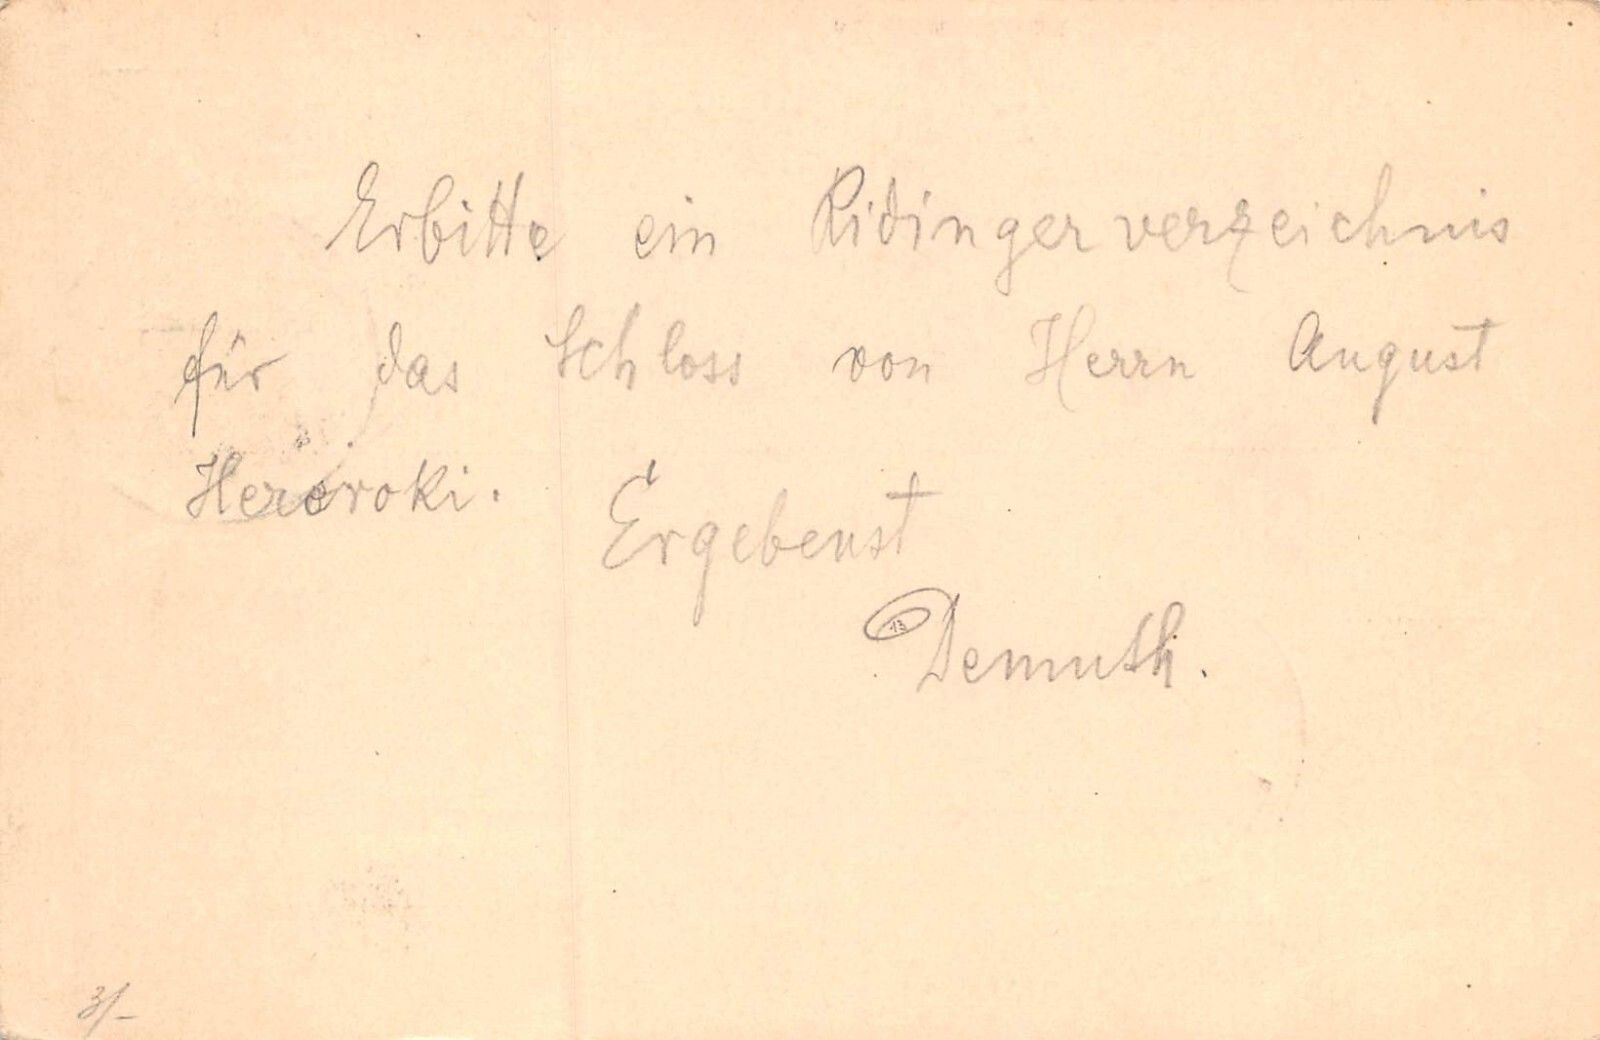 Erbitte ein Ridingerverzeichnis
für das Schloss von Herrn August
Ergebenst
13
Demuth.
3/-